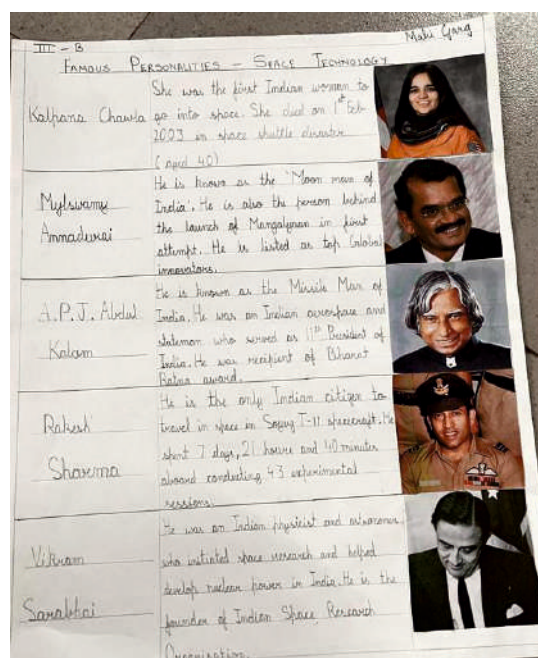 III - B
Malvi Garg
FAMOUS PERSONALITIES - SPACE TECHNOLOGY
Kalpana Chawla
She was the first Indian woman to
go into space. She died on 1st Feb
2003 in space shuttle disaster
(aged 40)
Mylswamy
Annadurai
He is known as the "Moon man of
India'. He is also the person behind
the launch of Mangalyaan in first
attempt. He is listed as top Global
innovators.
A.P.J. Abdul
Kalam
He is known as the Missile Man of
India. He was an Indian aerospace and
statesman who served as 11th President of
India. He was recipient of Bharat
Ratna award.
Rakesh
Sharma
He is the only Indian citizen to
travel in space in Soyuz T-11 spacecraft. He
spent 7 days, 21 hours and 40 minutes
aboard conducting 43 experimental
sessions.
Vikram
Sarabhai
He was an Indian physicist and astronomer
who initiated space research and helped
develop nuclear power in India. He is the
founder of Indian Space Research
Organisation.